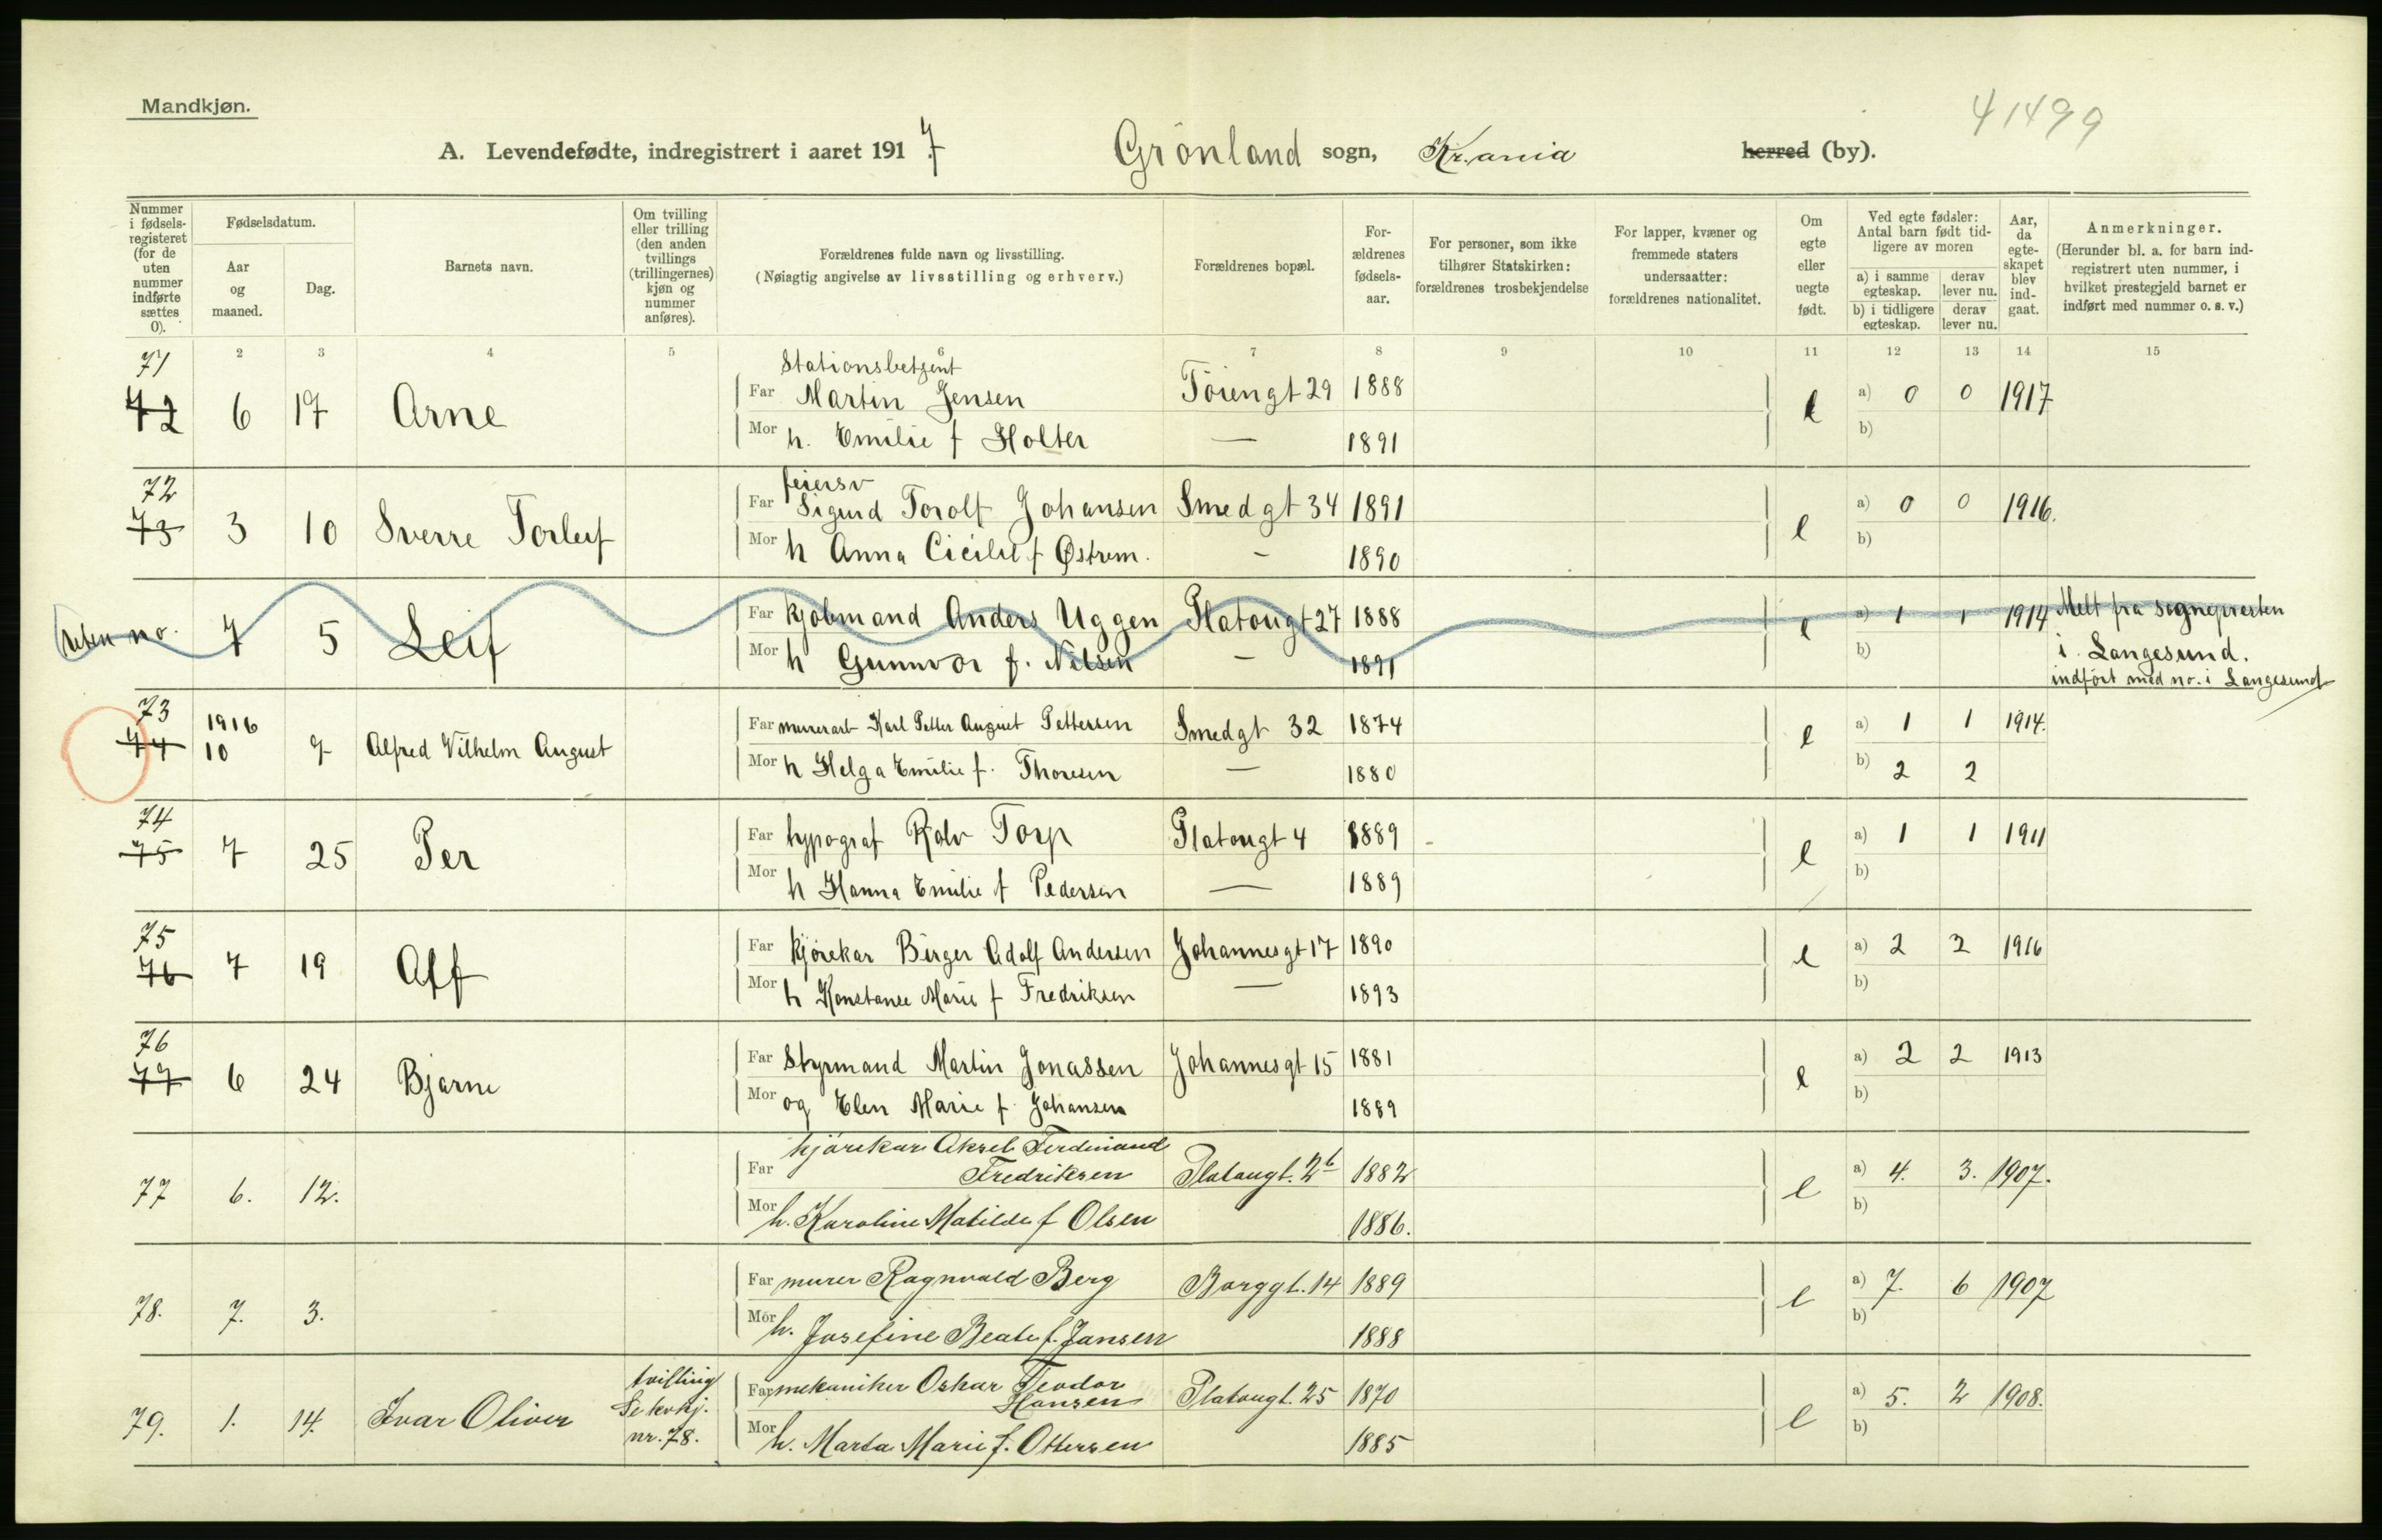 Mandkjøn.
41499
A. Levendefødte, indregistrert i aaret 1917. Grönland sogn, Kr.ania herred (by).
Nummer i fødselsregisteret (for de uten nummer indførte sættes 0).
Fødselsdatum.
Aar og maaned.
Dag.
Barnets navn.
Om tvilling eller trilling (den anden tvillings (trillingernes) kjøn og nummer anføres).
Forældrenes fulde navn og livsstilling.
(Nøiagtig angivelse av livsstilling og erhverv.)
Forældrenes bopæl.
Forældrenes fødselsaar.
For personer, som ikke tilhører Statskirken: forældrenes trosbekjendelse
For lapper, kvæner og fremmede staters undersaatter: forældrenes nationalitet.
Om egte eller uegte født.
Ved egte fødsler: Antal barn født tidligere av moren
a) i samme egteskap. derav lever nu.
b) i tidligere egteskap. derav lever nu.
Aar, da egteskapet blev indgaat.
Anmerkninger.
(Herunder bl. a. for barn indregistrert uten nummer, i hvilket prestegjeld barnet er indført med nummer o. s. v.)
2 3 4 5 6 7 8 9 10 11 12 13 14 15
71 Stationsbetjent
72 6 17 Arne Far Martin Jensen Töiengt 29 1888 e a) 0 0 1917
Mor h. Emilie f Holter — 1891 b)
72 feiersv
73 3 10 Sverre Torleif Far Sigurd Torolf Johansen Smedgt 34 1891 e a) 0 0 1916.
Mor h Anna Cicilie f Østrem. – 1890 b)
uten no. 7 5 Leif Far kjöbmand Anders Uggen Platougt 27 1888 e a) 1 1 1914 Melt fra sognepresten
Mor h Gunnvor f. Nilsen – 1891 b) i Langesund.
indfört med no. i Langesund
73 1916
74 10 9 Alfred Vilhelm August Far murerarb Karl Petter August Pettersen Smedgt 32 1874 e a) 1 1 1914.
Mor h Helga Emilie f. Thoresen — 1880 b) 2 2
74
75 7 25 Per Far typograf Rolv Torp Platougt 4 1889 e a) 1 1 1911
Mor h Hanna Emilie f Pedersen — 1889 b)
75
76 7 19 Alf Far kjörekar Birger Adolf Andersen Johannesgt 17 1890 e a) 2 2 1916
Mor h Konstanse Marie f Fredriksen — 1893 b)
76
77 6 24 Bjarne Far Styrmand Martin Jonassen Johannesgt 15 1881 e a) 2 2 1913
Mor og Elen Marie f. Johansen 1889 b)
kjörekar Aksel Ferdinand
77 6. 12. Far Fredriksen Platougt. 2b 1882 e a) 4. 3. 1907.
Mor h. Karoline Matilde f Olsen 1886. b)
78. 7. 3. Far murer Ragnvald Berg Borggt. 14 1889 e a) 7. 6 1907
Mor h. Josefine Beate f. Jansen 1888 b)
79. 1. 14. Ivar Oliver tvilling Se kvkj. nr. 78. Far mekaniker Oskar Teodor Hansen Platougt. 25 1870 e a) 5. 2 1908.
Mor h. Marta Marie f. Ottersen 1885 b)